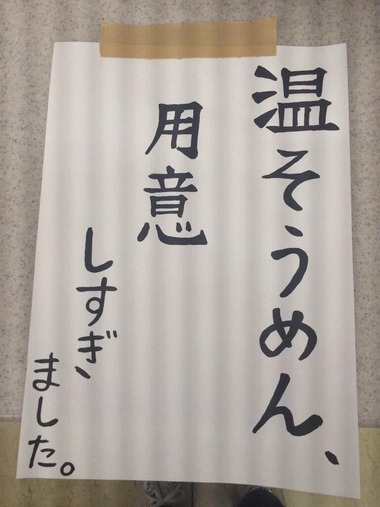 温そうめん、
用意
しすぎ
ました。